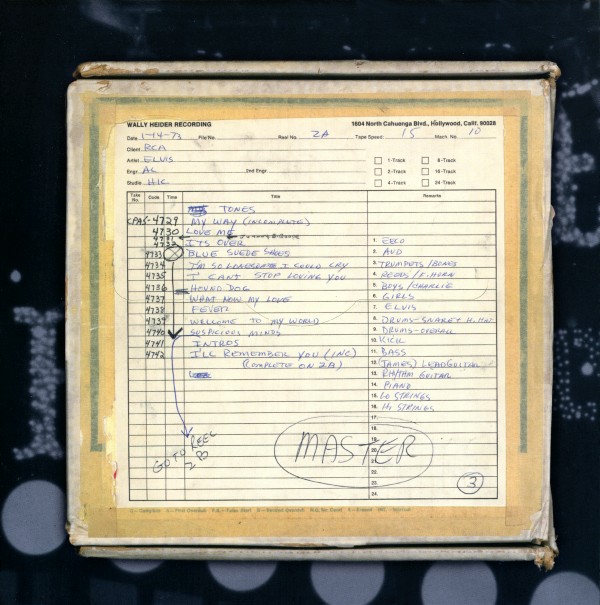 WALLY HEIDER RECORDING 1604 North Cahuenga Blvd., Hollywood, Calif. 90028
Date 1-14-73 File No. Reel No. 2A Tape Speed: 15 Mach. No. 10
Client RCA
Artist ELVIS 1-Track 8-Track
Engr. AL 2nd Engr 2-Track 16-Track
Studio HIC 4-Track 24-Track
Take No. Code Time Title Remarks
TONES
CPAS-4729 MY WAY (INCOMPLETE)
4730 LOVE ME
4731 JOHNNY B. GOODE
4732 ITS OVER
4733 BLUE SUEDE SHOES
4734 I'M SO LONESOME I COULD CRY
4735 I CANT STOP LOVING YOU
4736 HOUND DOG
4737 WHAT NOW MY LOVE
4738 FEVER
4739 WELLCOME TO MY WORLD
4740 SUSPICIOUS MINDS
4741 INTROS
4742 I'LL REMEMBER YOU (INC)
(COMPLETE ON 2B)
GO TO REEL 2B
1. ECCO
2. AUD
3. TRUMPETS/BONES
4. REEDS/F.HORN
5. BOYS/CHARLIE
6. GIRLS
7. ELVIS
8. DRUMS-SNARE + H. HAT
9. DRUMS-OVERALL
10. KICK
11. BASS
12. (JAMES) LEAD GUITAR
13. RHYTHM GUITAR
14. PIANO
15. LO STRINGS
16. HI STRINGS
17.
18.
19.
20.
21.
22.
23.
24.
MASTER
3